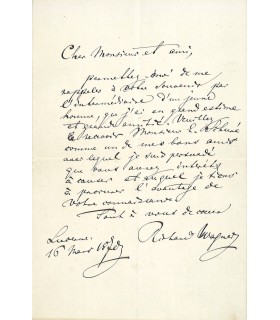 Cher Monsieur et ami,
permettez-moi de me
rappeler à votre souvenir par
l'intermédiaire d'un jeune
homme, que j'ai en grand estime
et grande amitié. Veuillez
le recevoir Monsieur E.
comme un de mes bons amis
avec lequel je suis persuadé
que vous aurez intérêts
à causer et auquel je tiens
à procurer l'avantage de
votre connaissance
Tout à vous de coeur
Richard Wagner
Lucerne.
16 Mars